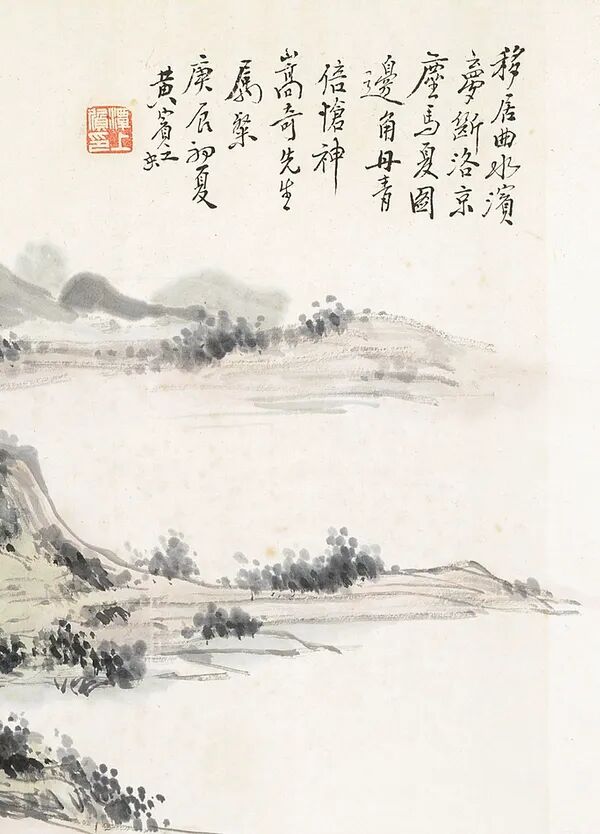 移居曲水濱
夢斷洛京
塵馬夏圖
邊角丹青
倍愴神
嵩奇先生
屬粲
庚辰初夏
黃賓虹